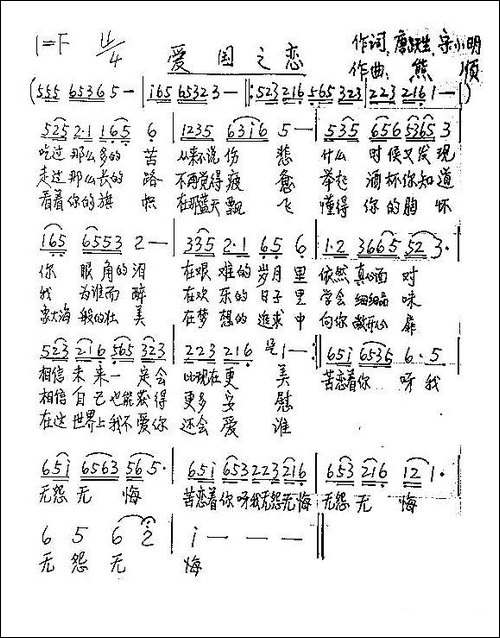 1=F 4/4 爱国之恋 作词:廖 生、宋小明
作曲:熊 顺
(555 6536 5 — | i65 6532 3 — ‖: 523 216 565 323 | 223 216 1 — )
525 2·1 165 6 | 1235 6 3 i 6 5 — | 535 656 5365 3
吃过 那么多的 苦 从来不说 伤 悲 什么 时候 又发 现
走过 那么长的 路 不再觉得 疲 惫 举起 酒杯 你知 道
看着 你的 旗 帜 在那蓝天 飘 飞 懂得 你的 胸 怀
165 6553 2 — | 335 2·1 6 5 6 | 1·2 3665 52 3·
你 眼角的 泪 在艰 难的 岁月 里 依然 真心面 对
我 为谁而 醉 在欢 乐的 日子 里 学会 细细品 味
象大海 般的壮 美 在梦 想的 追求 中 向你 敞开心 扉
523 216 565 323 | 223 216 1 — :‖ 65i 6535 6·5
相信 未来 一定 会 比现在 更 美 苦恋着你 呀我
相信 自己 也能 获得 更多 安 慰
在这 世界上 我不 爱你 还会 爱 谁
65i 6563 56 5· | 65i 653 223 216 | 653 216 12 1·
无怨 无 悔 苦恋着你 呀我 无怨 无悔 无怨 无 悔
6 5 6 2 | i — — — ‖
无 怨 无 悔